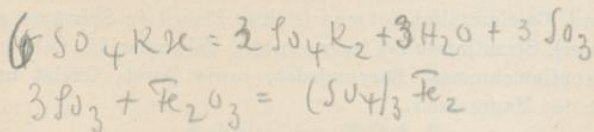 6 SO₄KH = 3 SO₄K₂ + 3H₂O + 3 SO₃
3 SO₃ + Fe₂O₃ = (SO₄)₃ Fe₂